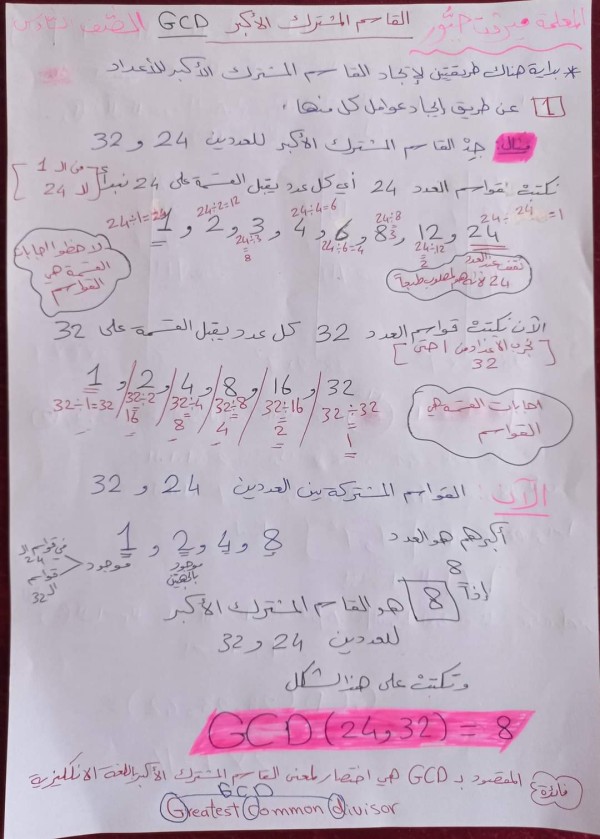 المعلمة ميرفت خيّور القاسم المشترك الأكبر GCD الصف السادس
* بداية هناك طريقتين لإيجاد القاسم المشترك الأكبر للأعداد
1 عن طريق إيجاد عوامل كل منها .
مثال: جِدْ القاسم المشترك الأكبر للعددين 24 و 32
نكتبْ قواسم العدد 24 أي كل عدد يقبل القسمة على 24 نبدأ [من الـ 1 لـ 24]
1 و 2 و 3 و 4 و 6 و 8 و 12 و 24
24÷1=24
24÷2=12
24÷3=8
24÷4=6
24÷6=4
24÷8=3
24÷12=2
24÷24=1
لاحظوا إجابات
القسمة هي
القواسم
نقف عند العدد
24 لأنه هو المطلوب طبعاً
الآن نكتبْ قواسم العدد 32 كل عدد يقبل القسمة على 32
[نجرب الأعداد من 1 حتى 32]
1 و 2 و 4 و 8 و 16 و 32
32÷1=32
32÷2=16
32÷4=8
32÷8=4
32÷16=2
32÷32=1
اجابات القسمة هي
القواسم
الآن : القواسم المشتركة بين العددين 24 و 32
1 و 2 و 4 و 8 أكبرهم هو العدد 8
موجود في قواسم الـ 24
قواسم الـ 32
موجود بالجهتين
إذاً 8 هو القاسم المشترك الأكبر
للعددين 24 و 32
وتكتبْ على هذا الشكل
GCD (24 و 32) = 8
فائدة: المقصود بـ GCD هي اختصار لمعنى القاسم المشترك الأكبر باللغة الانكليزية
GCD
Greatest Common divisor